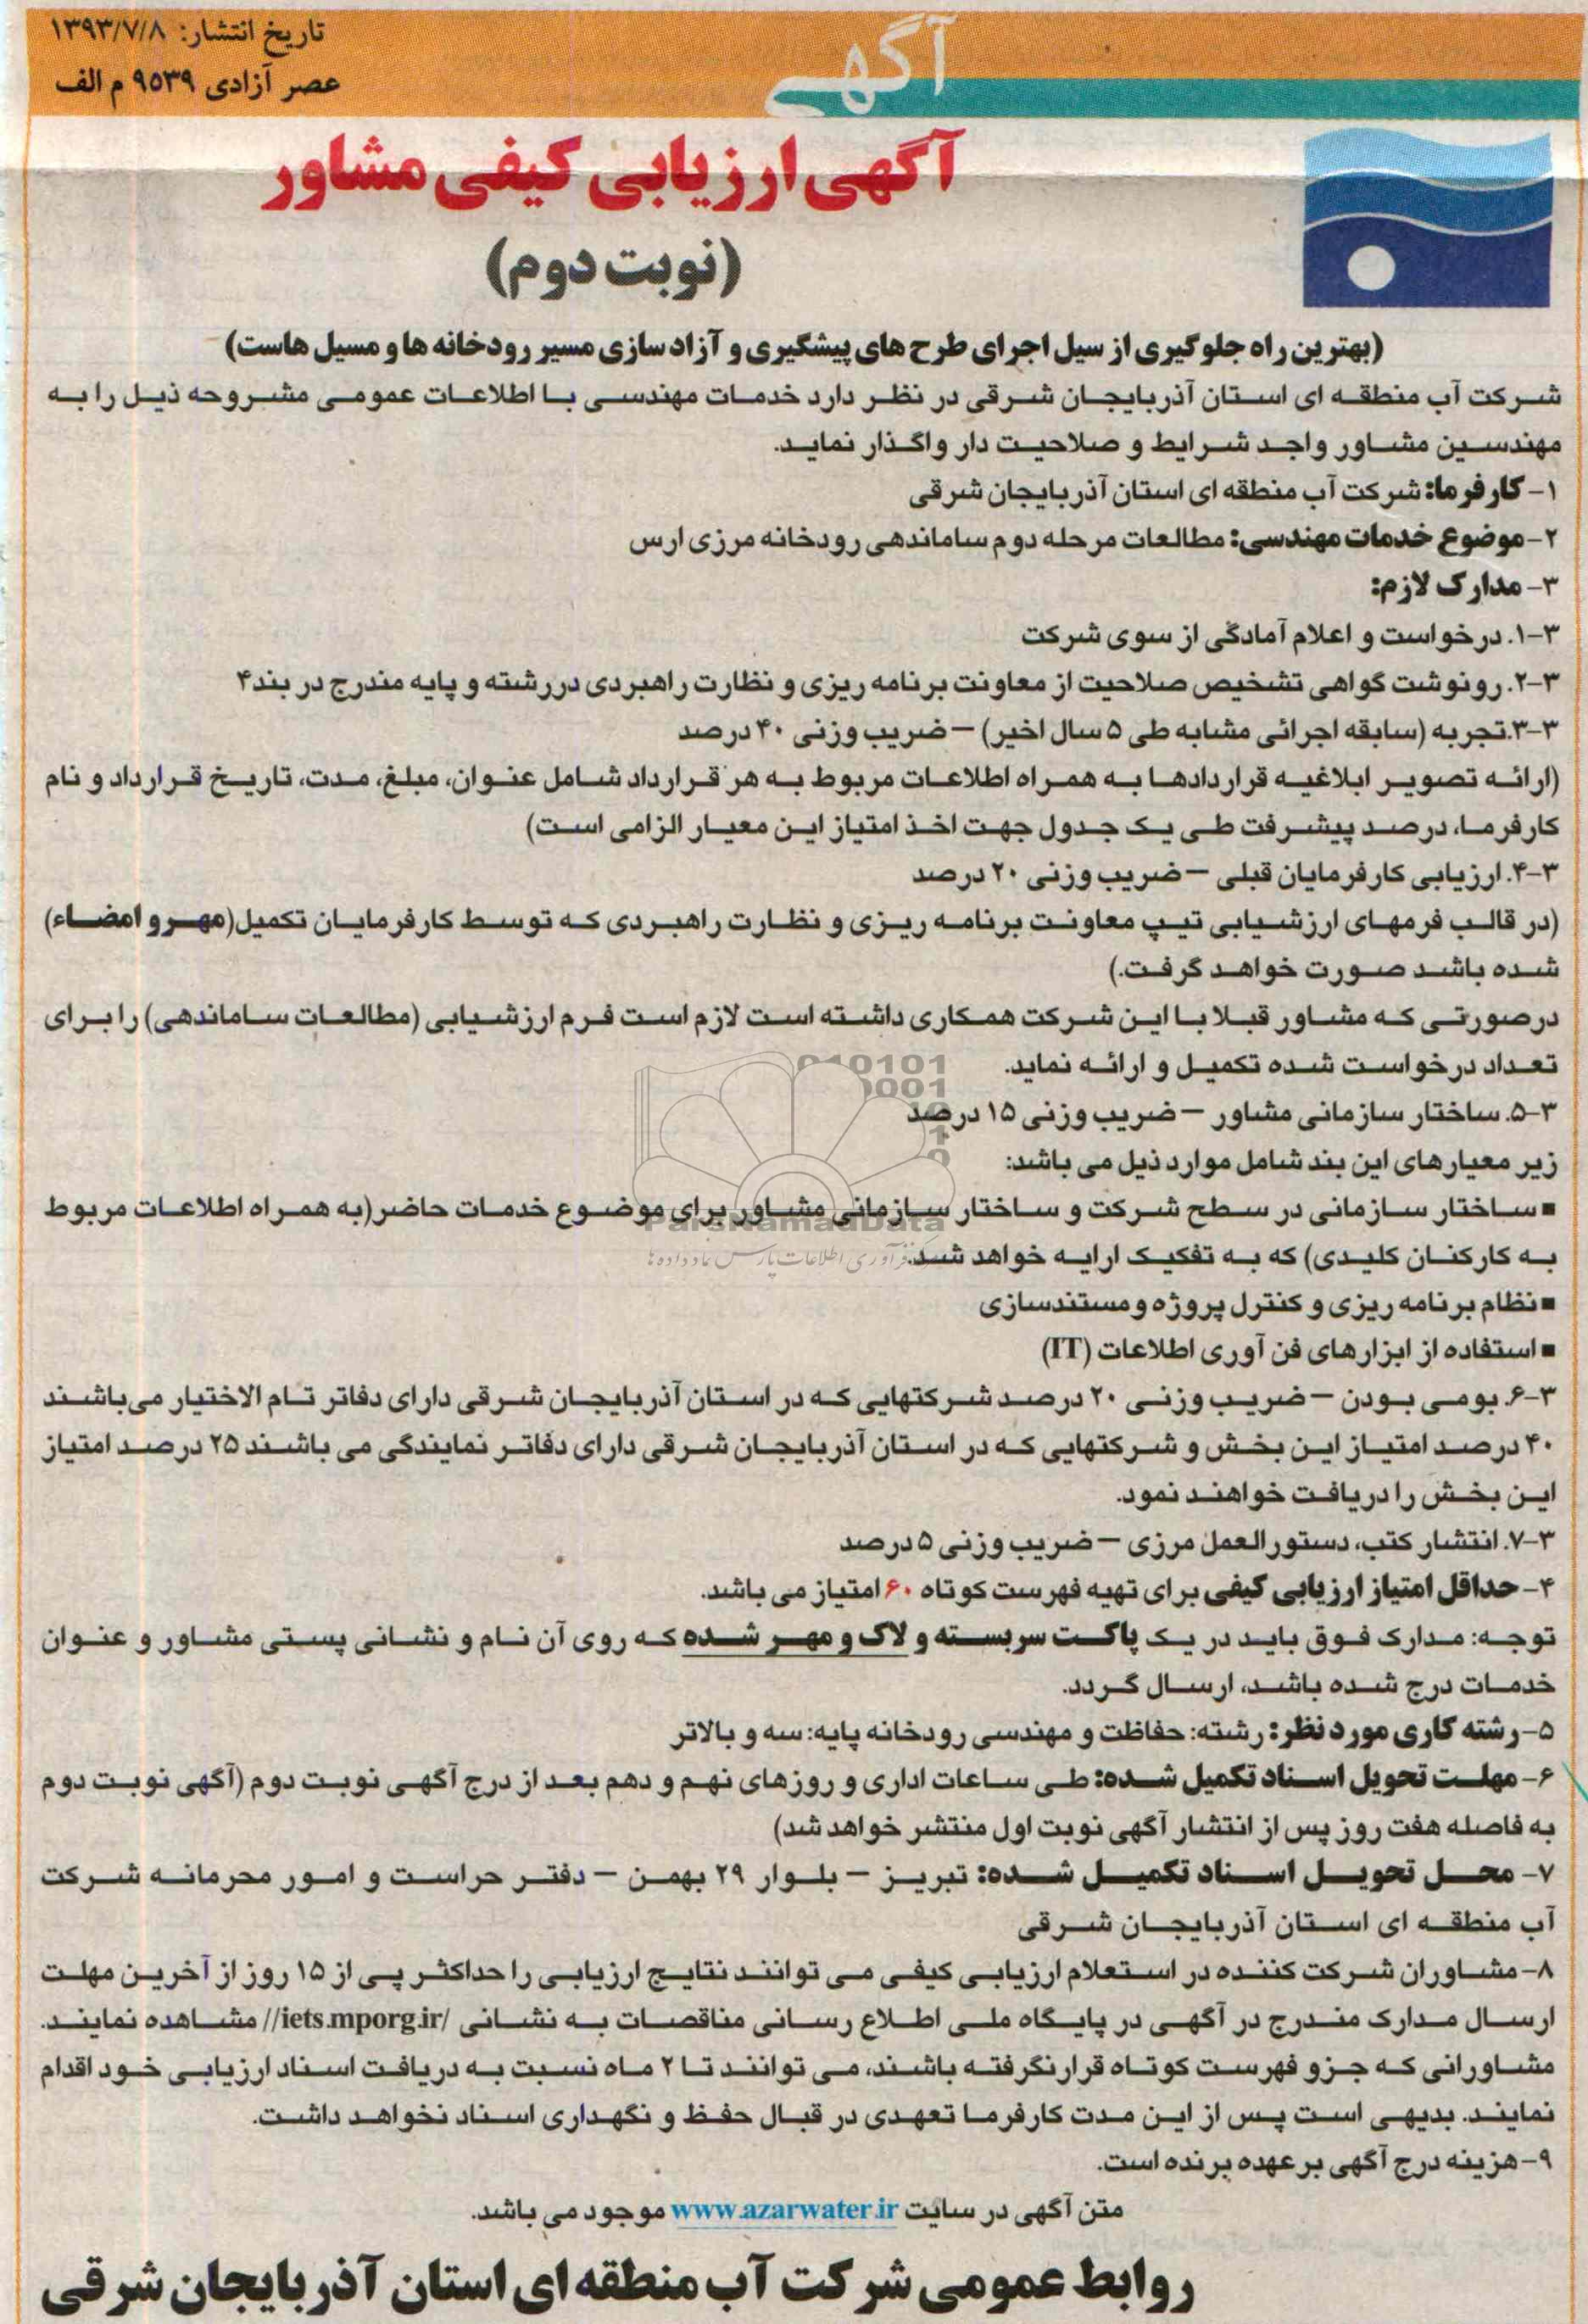 تاریخ انتشار: ۱۳۹۳/۷/۸
عصر آزادی ۹۵۳۹ م الف
آگهی
آگهی ارزیابی کیفی مشاور
(نوبت دوم)
(بهترین راه جلوگیری از سیل اجرای طرح های پیشگیری و آزاد سازی مسیر رودخانه ها و مسیل هاست)
شرکت آب منطقه ای استان آذربایجان شرقی در نظر دارد خدمات مهندسی با اطلاعات عمومی مشروحه ذیل را به
مهندسین مشاور واجد شرایط و صلاحیت دار واگذار نماید.
۱- کارفرما: شرکت آب منطقه ای استان آذربایجان شرقی
۲- موضوع خدمات مهندسی: مطالعات مرحله دوم ساماندهی رودخانه مرزی ارس
۳- مدارک لازم:
۳-۱. درخواست و اعلام آمادگی از سوی شرکت
۳-۲. رونوشت گواهی تشخیص صلاحیت از معاونت برنامه ریزی و نظارت راهبردی دررشته و پایه مندرج در بند۴
۳-۳.تجربه (سابقه اجرائی مشابه طی ۵ سال اخیر) – ضریب وزنی ۴۰ درصد
(ارائه تصویر ابلاغیه قراردادها به همراه اطلاعات مربوط به هر قرارداد شامل عنوان، مبلغ، مدت، تاریخ قرارداد و نام
کارفرما، درصد پیشرفت طی یک جدول جهت اخذ امتیاز این معیار الزامی است)
۳-۴. ارزیابی کارفرمایان قبلی – ضریب وزنی ۲۰ درصد
(در قالب فرمهای ارزشیابی تیپ معاونت برنامه ریزی و نظارت راهبردی که توسط کارفرمایان تکمیل(مهر و امضاء)
شده باشد صورت خواهد گرفت.)
درصورتی که مشاور قبلا با این شرکت همکاری داشته است لازم است فرم ارزشیابی (مطالعات ساماندهی) را برای
تعداد درخواست شده تکمیل و ارائه نماید.
۳-۵. ساختار سازمانی مشاور – ضریب وزنی ۱۵ درصد
زیر معیارهای این بند شامل موارد ذیل می باشد:
▪ ساختار سازمانی در سطح شرکت و ساختار سازمانی مشاور برای موضوع خدمات حاضر(به همراه اطلاعات مربوط
ParsNamadData
به کارکنان کلیدی) که به تفکیک ارایه خواهد شد.
▪ نظام برنامه ریزی و کنترل پروژه ومستندسازی
▪ استفاده از ابزارهای فن آوری اطلاعات (IT)
۳-۶. بومی بودن – ضریب وزنی ۲۰ درصد شرکتهایی که در استان آذربایجان شرقی دارای دفاتر تام الاختیار می‌باشند
۴۰ درصد امتیاز این بخش و شرکتهایی که در استان آذربایجان شرقی دارای دفاتر نمایندگی می باشند ۲۵ درصد امتیاز
این بخش را دریافت خواهند نمود.
۳-۷. انتشار کتب، دستورالعمل مرزی – ضریب وزنی ۵ درصد
۴- حداقل امتیاز ارزیابی کیفی برای تهیه فهرست کوتاه ۶۰ امتیاز می باشد.
توجه: مدارک فوق باید در یک پاکت سربسته و لاک و مهر شده که روی آن نام و نشانی پستی مشاور و عنوان
خدمات درج شده باشد، ارسال گردد.
۵- رشته کاری مورد نظر: رشته: حفاظت و مهندسی رودخانه پایه: سه و بالاتر
۶- مهلت تحویل اسناد تکمیل شده: طی ساعات اداری و روزهای نهم و دهم بعد از درج آگهی نوبت دوم (آگهی نوبت دوم
به فاصله هفت روز پس از انتشار آگهی نوبت اول منتشر خواهد شد)
۷- محل تحویل اسناد تکمیل شده: تبریز – بلوار ۲۹ بهمن – دفتر حراست و امور محرمانه شرکت
آب منطقه ای استان آذربایجان شرقی
۸- مشاوران شرکت کننده در استعلام ارزیابی کیفی می توانند نتایج ارزیابی را حداکثر پی از ۱۵ روز از آخرین مهلت
ارسال مدارک مندرج در آگهی در پایگاه ملی اطلاع رسانی مناقصات به نشانی /iets.mporg.ir// مشاهده نمایند.
مشاورانی که جزو فهرست کوتاه قرارنگرفته باشند، می توانند تا ۲ ماه نسبت به دریافت اسناد ارزیابی خود اقدام
نمایند. بدیهی است پس از این مدت کارفرما تعهدی در قبال حفظ و نگهداری اسناد نخواهد داشت.
۹- هزینه درج آگهی بر عهده برنده است.
متن آگهی در سایت www.azarwater.ir موجود می باشد.
روابط عمومی شرکت آب منطقه ای استان آذربایجان شرقی